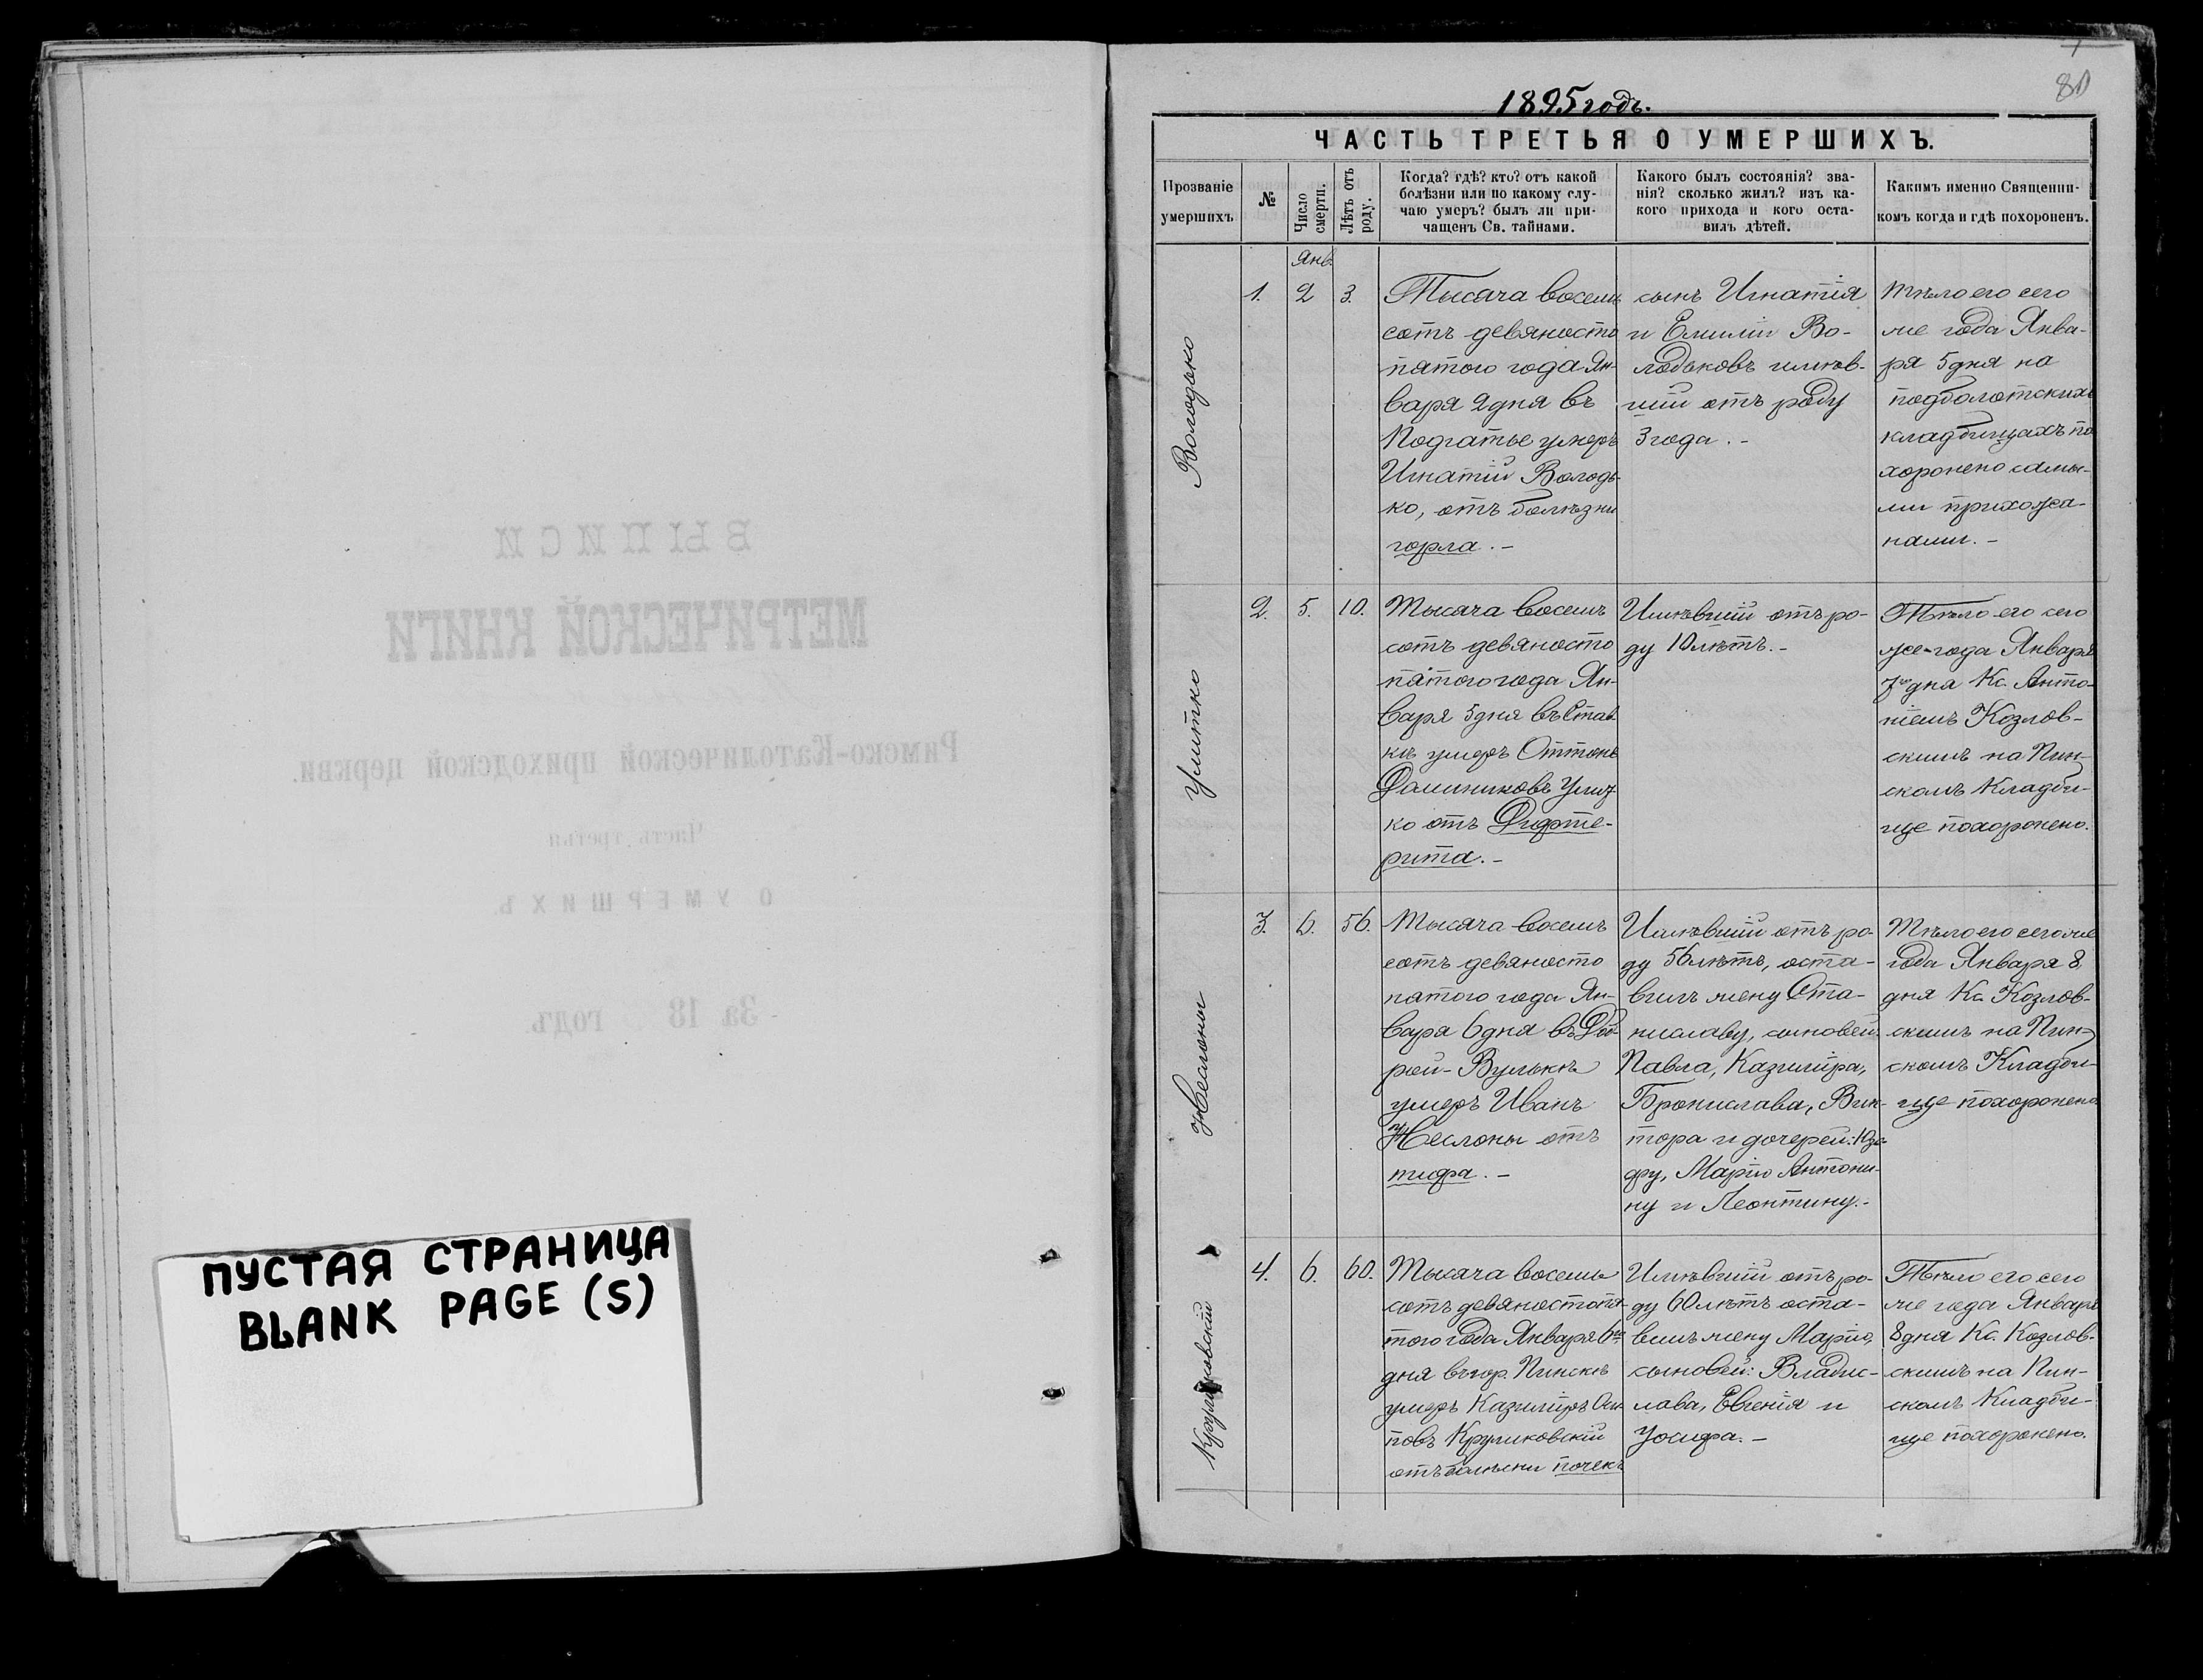 ПУСТАЯ СТРАНИЦА
BLANK PAGE (S)
80
1895 годъ.
ЧАСТЬ ТРЕТЬЯ О УМЕРШИХЪ.
Прозваніе
умершихъ
№
Число
смерти.
Лѣтъ отъ
роду.
Когда? гдѣ? кто? отъ какой
болѣзни или по какому слу-
чаю умеръ? былъ ли при-
чащенъ Св. тайнами.
Какого былъ состоянія? зва-
нія? сколько жилъ? изъ ка-
кого прихода и кого оста-
вилъ дѣтей.
Какимъ именно Священни-
комъ когда и гдѣ похороненъ.
Володько
Янв.
1.
2
3.
Тысяча восемь
сотъ девяносто
пятого года Ян-
варя 2 дня въ
Подгатье умеръ
Игнатій Володь-
ко, отъ болѣзни
горла. –
сынъ Игнатія
и Емиліи Во-
лодьковъ имѣв-
шій отъ роду
3 года. –
Тѣло его сего
же года Янва-
ря 5 дня на
подболотскихъ
кладбищахъ по
хоронено самы-
ми прихожа-
нами. –
Улитко
2.
5.
10.
Тысяча восемь
сотъ девяносто
пятого года Ян-
варя 5 дня въ Став
кѣ умеръ Оттонъ
ко отъ Дифте-
рита. –
Имѣвшій отъ ро-
ду 10 лѣтъ. –
Тѣло его сего
же года Января
7го дня Кс. Анто-
ніемъ Козлов-
скимъ на Пин-
скомъ Кладби-
ще похоронено.
3.
6.
56.
Тысяча восемь
сотъ девяносто
пятого года Ян-
варя 6 дня въ
рой-Вулькѣ
умеръ Иванъ
отъ
тифа. –
Имѣвшій отъ ро-
ду 56 лѣтъ, оста-
вилъ жену Ста-
ниславу, сыновей:
Павла, Казиміра,
Бронислава, Вик-
тора и дочерей: Юзе
фу, Марію Антони-
ну и Леонтину. –
Тѣло его сего же
года Января 8
дня Кс. Козлов-
скимъ на Пин-
скомъ Кладби-
ще похоронено
Круликовскій
4.
6.
60.
Тысяча восемь
сотъ девяносто пя-
того года Января 6го
дня въ гор. Пинскѣ
умеръ Казиміръ Оси
повъ Круликовскій
отъ болѣзни почекъ
Имѣвшій отъ ро-
ду 60 лѣтъ оста-
вилъ жену Марію,
сыновей: Владис-
лава, Евгенія и
Іосифа. –
Тѣло его сего
же года Января
8 дня Кс. Козлов-
скимъ на Пин-
скомъ Кладби-
ще похоронено.